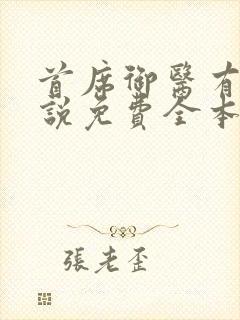 首席御醫有
說免費全本
張老歪